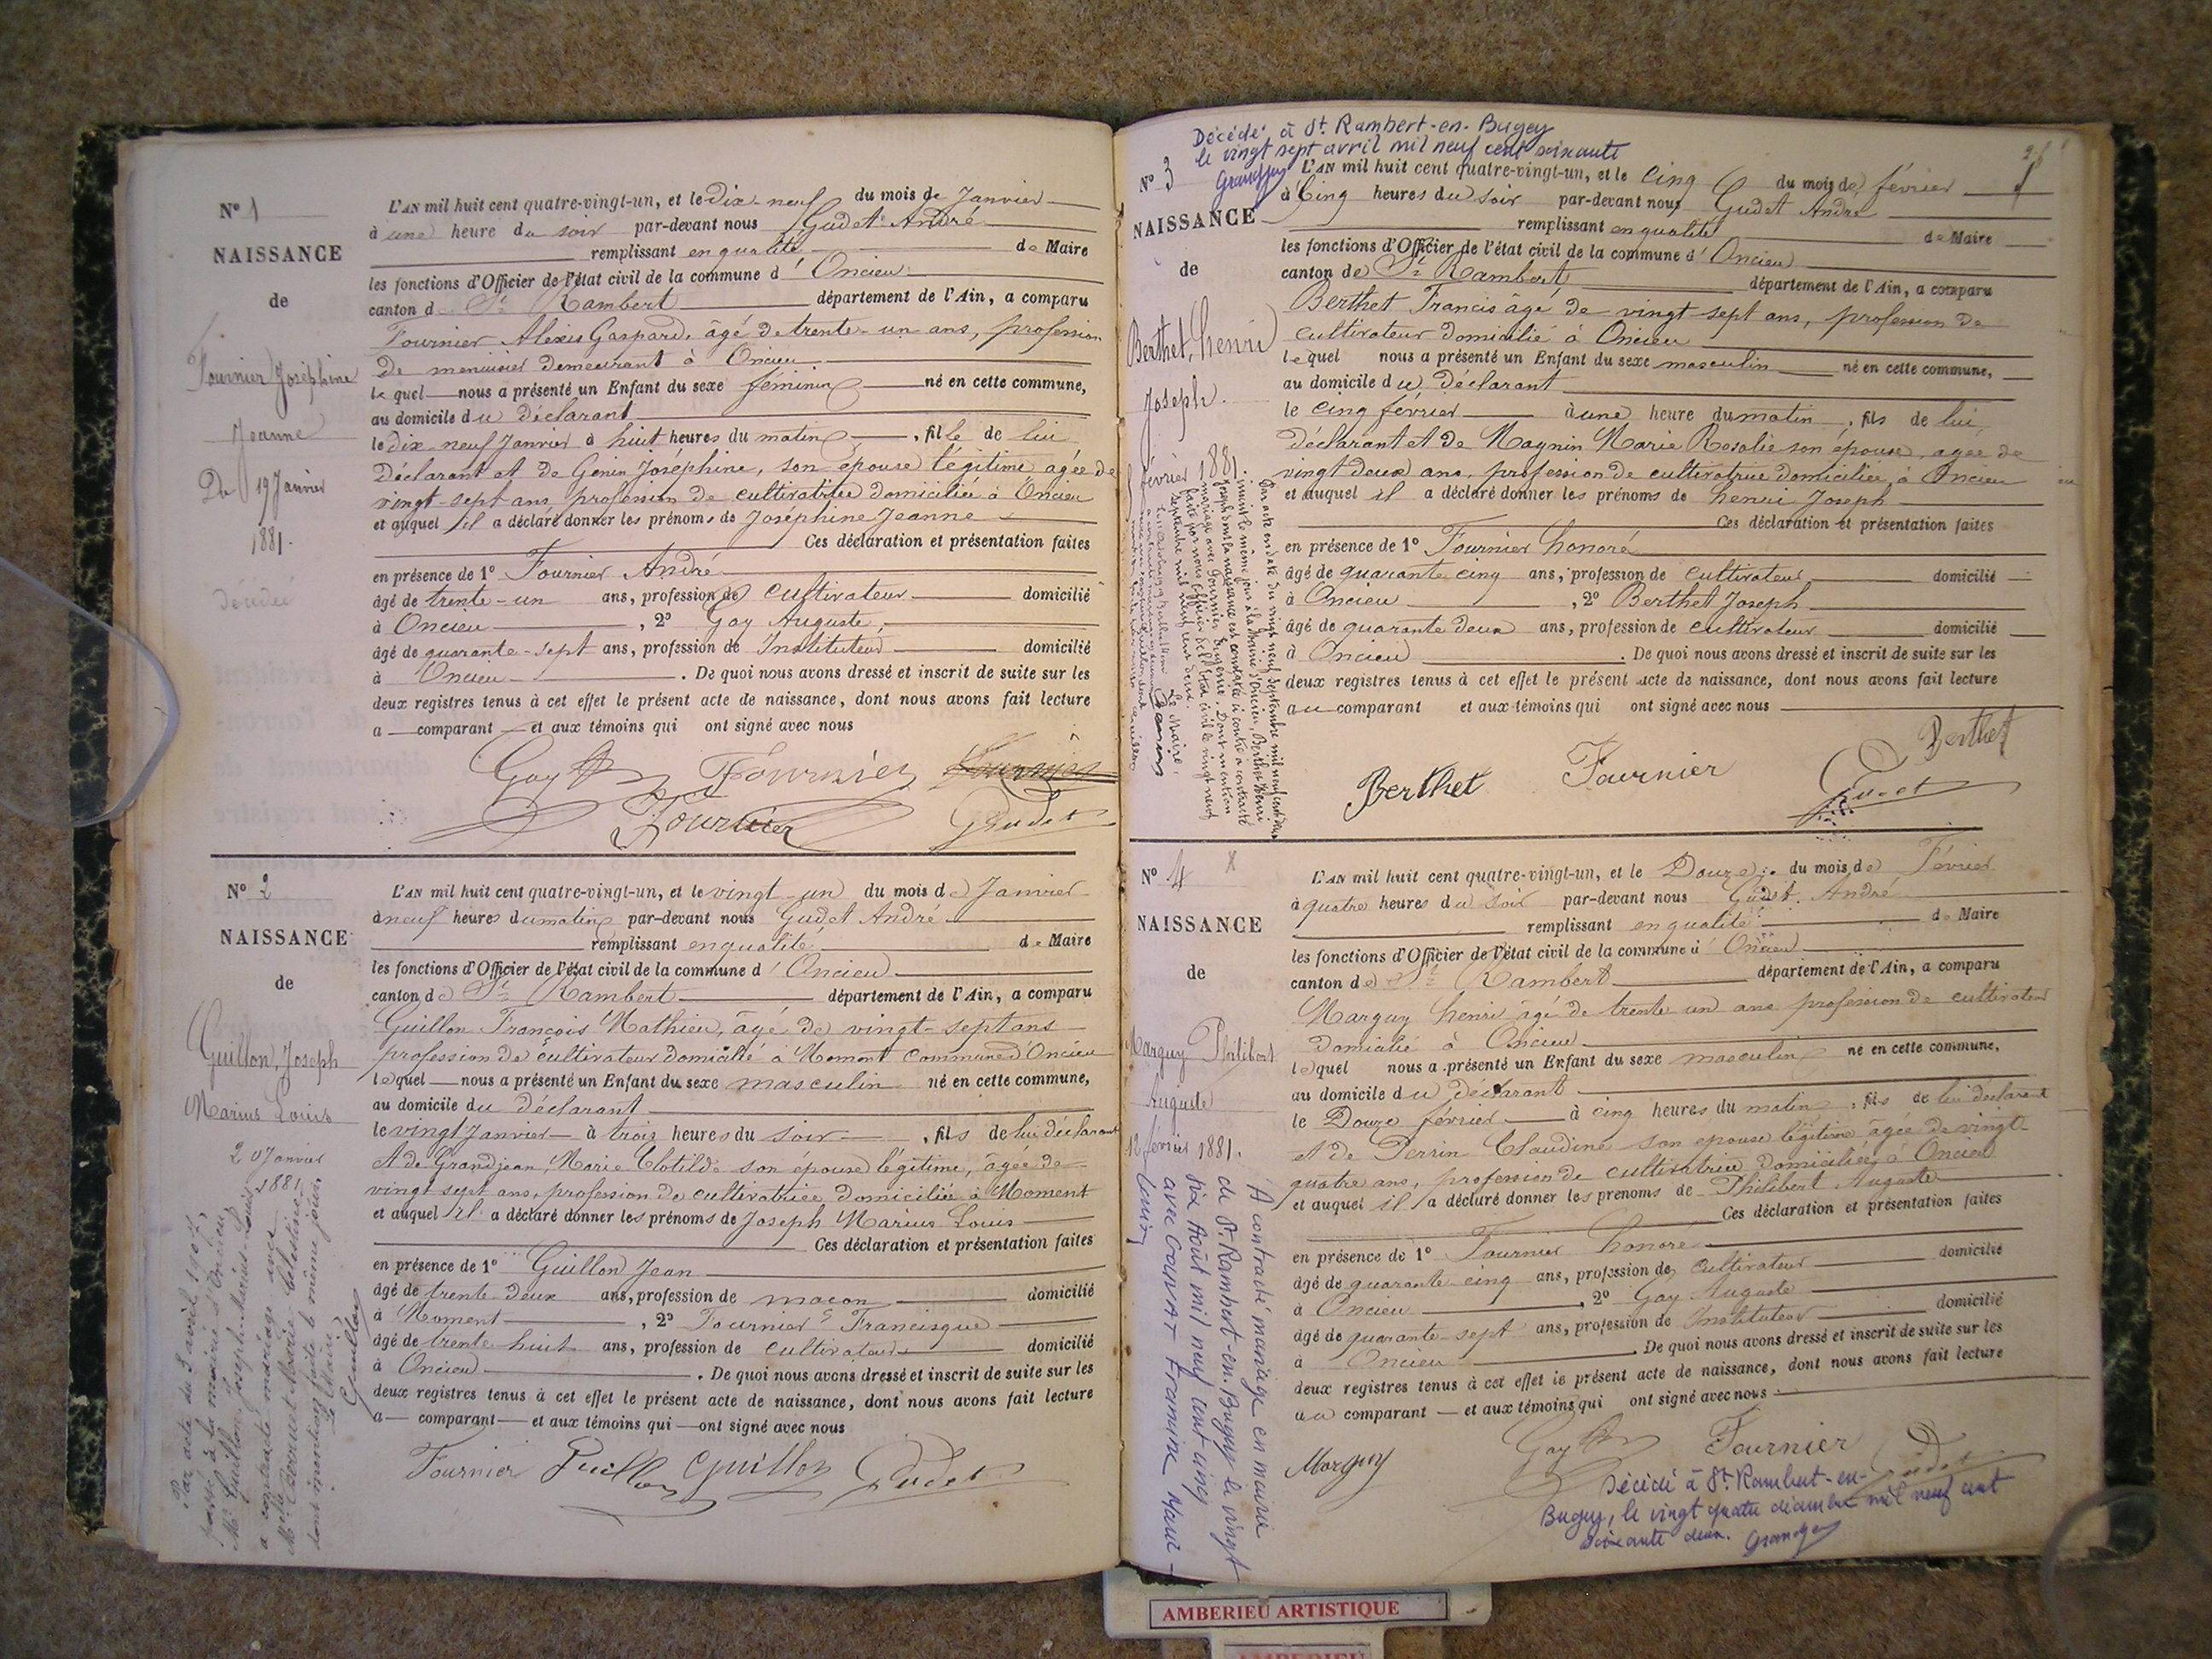 N° 1
NAISSANCE
de
Fournier Joséphine
Jeanne
De 19 Janvier
1881.
décédée
L'AN mil huit cent quatre-vingt-un, et le Dix-neuf du mois de Janvier
à une heure du soir par-devant nous Gudet André
remplissant en qualité de Maire
les fonctions d'Officier de l'état civil de la commune d'Oncieu
canton de St Rambert département de l'Ain, a comparu
Fournier Alexis Gaspard, âgé de trente-un ans, profession
De menuisier demeurant à Oncieu
lequel nous a présenté un Enfant du sexe féminin né en cette commune,
au domicile du déclarant
le dix-neuf Janvier à huit heures du matin, fille de lui
Déclarant et de Genin Joséphine, son épouse légitime agée de
vingt-sept ans, profession de cultivatrice domiciliée à Oncieu
et auquel il a déclaré donner les prénoms de Joséphine Jeanne
Ces déclaration et présentation faites
en présence de 1° Fournier André
âgé de trente-un ans, profession de cultivateur domicilié
à Oncieu, 2° Gay Auguste,
âgé de quarante-sept ans, profession de Instituteur domicilié
à Oncieu. De quoi nous avons dressé et inscrit de suite sur les
deux registres tenus à cet effet le présent acte de naissance, dont nous avons fait lecture
a comparant et aux témoins qui ont signé avec nous
Gay Fournier Fournier
Fournier Gudet
N° 2
NAISSANCE
de
Guillon, Joseph
Marius Louis
20 Janvier
1881
Par acte du 5 avril 1907,
passé à la mairie d'Oncieu,
Mr Guillon Joseph-Marius-Louis
a contracté mariage avec
Marie-Célestine
dont mention faite le même jour.
Le Maire
Guillon
L'AN mil huit cent quatre-vingt-un, et le vingt-un du mois de Janvier
à neuf heures du matin par-devant nous Gudet André
remplissant en qualité de Maire
les fonctions d'Officier de l'état civil de la commune d'Oncieu
canton de St Rambert département de l'Ain, a comparu
Guillon François Mathieu, âgé de vingt-sept ans
profession de cultivateur domicilié à Moment commune d'Oncieu
lequel nous a présenté un Enfant du sexe masculin né en cette commune,
au domicile du déclarant
le vingt Janvier à trois heures du soir, fils de lui déclarant
et de Grandjean, Marie Clotilde son épouse légitime, âgée de
vingt sept ans, profession de cultivatrice domiciliée à Moment
et auquel il a déclaré donner les prénoms de Joseph Marius Louis
Ces déclaration et présentation faites
en présence de 1° Guillon Jean
âgé de trente-deux ans, profession de maçon domicilié
à Moment, 2° Fournier Francisque
âgé de trente-huit ans, profession de cultivateur domicilié
à Oncieu. De quoi nous avons dressé et inscrit de suite sur les
deux registres tenus à cet effet le présent acte de naissance, dont nous avons fait lecture
a comparant et aux témoins qui ont signé avec nous
Fournier Guillon Guillon Gudet
Décédé à St. Rambert-en-Bugey
le vingt sept avril mil neuf cent soixante
N° 3
NAISSANCE
de
Berthet, henri
Joseph.
février 1881.
Par acte en date du vingt neuf septembre mil neuf cent
inscrit le même jour à la Mairie d'Oncieu, Berthet Henri
Joseph dont la naissance est constatée ci-contre a contracté
mariage avec Fournier Eugénie. Dont mention
faite par nous officier de l'état civil le vingt neuf
septembre mil neuf cent
Le Maire,
L'AN mil huit cent quatre-vingt-un, et le Cinq du mois de février
à Cinq heures du soir par-devant nous Gudet André
remplissant en qualité de Maire
les fonctions d'Officier de l'état civil de la commune d'Oncieu
canton de St Rambert département de l'Ain, a comparu
Berthet Francis âgé de vingt sept ans, profession de
cultivateur domicilié à Oncieu
lequel nous a présenté un Enfant du sexe masculin né en cette commune,
au domicile du déclarant
le cinq février à une heure du matin, fils de lui
déclarant et de Magnin Marie Rosalie son épouse, agée de
vingt deux ans, profession de cultivatrice domiciliée à Oncieu
et auquel il a déclaré donner les prénoms de henri Joseph
Ces déclaration et présentation faites
en présence de 1° Fournier honoré
âgé de quarante cinq ans, profession de cultivateur domicilié
à Oncieu, 2° Berthet Joseph
âgé de quarante deux ans, profession de cultivateur domicilié
à Oncieu. De quoi nous avons dressé et inscrit de suite sur les
deux registres tenus à cet effet le présent acte de naissance, dont nous avons fait lecture
au comparant et aux témoins qui ont signé avec nous
Berthet
Berthet Fournier Gudet
N° 4
NAISSANCE
de
Marguy Philibert
Auguste
12 février 1881.
A contracté mariage en mairie
de St. Rambert-en-Bugey le vingt
six Août mil neuf cent cinq
avec COURVAT Framine
L'AN mil huit cent quatre-vingt-un, et le Douze du mois de Février
à quatre heures du soir par-devant nous Gudet André
remplissant en qualité de Maire
les fonctions d'Officier de l'état civil de la commune d'Oncieu
canton de St Rambert département de l'Ain, a comparu
Marguy henri âgé de trente un ans profession de cultivateur
domicilié à Oncieu
lequel nous a présenté un Enfant du sexe masculin né en cette commune,
au domicile du déclarant
le Douze février à cinq heures du matin, fils de lui déclarant
et de Perrin Claudine son épouse légitime âgée de vingt-
quatre ans, profession de cultivatrice domiciliée à Oncieu
et auquel il a déclaré donner les prénoms de Philibert Auguste
Ces déclaration et présentation faites
en présence de 1° Fournier honoré
âgé de quarante-cinq ans, profession de Cultivateur domicilié
à Oncieu, 2° Gay Auguste
âgé de quarante-sept ans, profession de Instituteur domicilié
à Oncieu. De quoi nous avons dressé et inscrit de suite sur les
deux registres tenus à cet effet le présent acte de naissance, dont nous avons fait lecture
au comparant et aux témoins qui ont signé avec nous
Marguy Gay Fournier Gudet
Décédé à St. Rambert-en-
Bugey, le vingt quatre décembre mil neuf cent
soixante deux.
AMBERIEU ARTISTIQUE
AMBERIEU